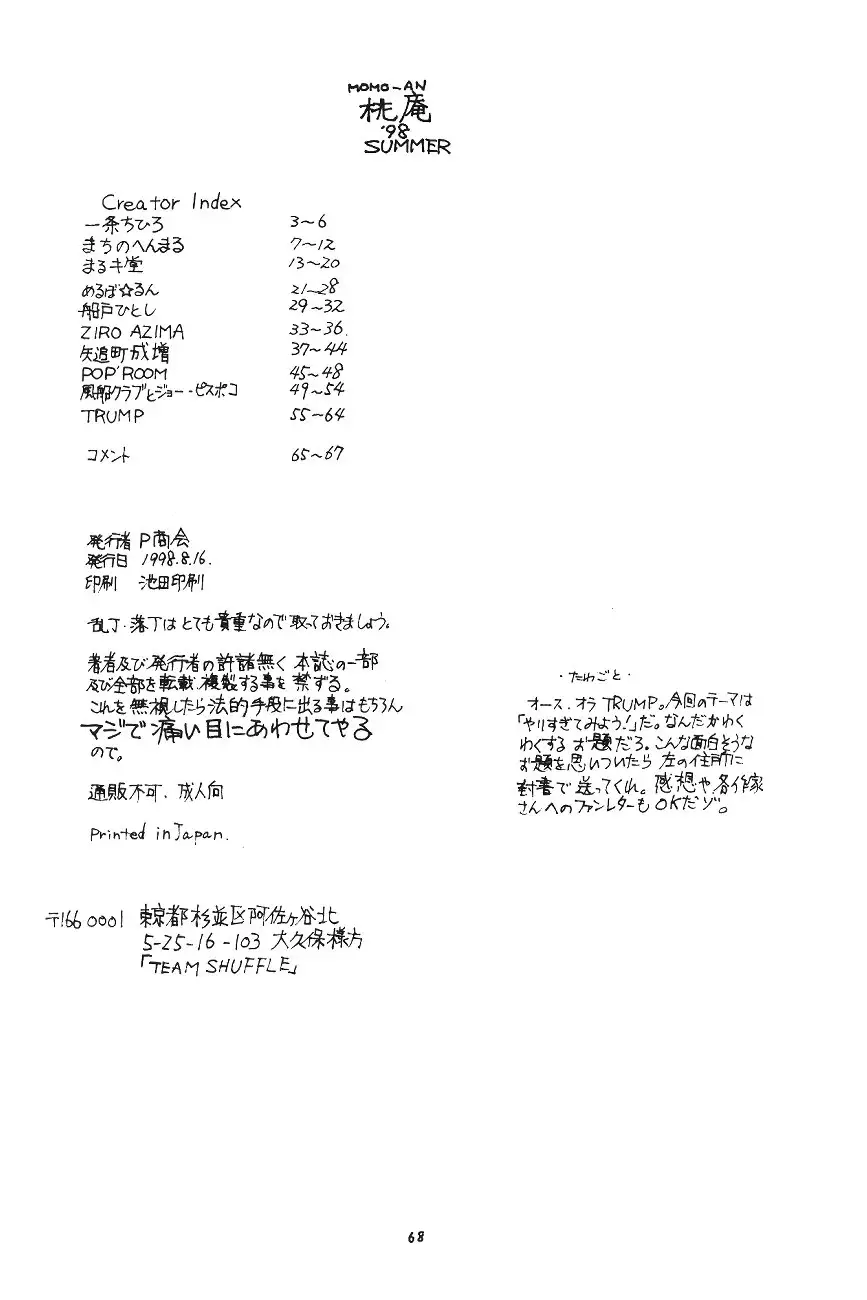 MOMO-AN
桃庵
'98
SUMMER
Creator Index
一条ちひろ 3~6
まちのへんまる 7~12
まるキ堂 13~20
めるば☆るん 21~28
船戸ひとし 29~32
ZIRO AZIMA 33~36.
矢追町成増 37~44
POP'ROOM 45~48
風船クラブとジョー・ピスポコ 49~54
TRUMP 55~64
コメント 65~67
発行者 P商会
発行日 1998.8.16.
印刷 池田印刷
乱丁・落丁はとても貴重なので取っておきましょう。
著者及び発行者の許諾無く本誌の一部
及び全部を転載・複製する事を禁ずる。
これを無視したら法的手段に出る事はもちろん
マジで痛い目にあわせてやる
ので。
通販不可. 成人向
Printed in Japan.
〒166 0001 東京都杉並区阿佐ヶ谷北
5-25-16-103 大久保様方
「TEAM SHUFFLE」
・たわごと・
オース.オラTRUMP。今回のテーマは
「やりすぎてみよう!」だ。なんだかわく
わくするお題だろ。こんな面白そうな
お題を思いついたら左の住所に
封書で送ってくれ。感想や各作家
さんへのファンレターもOKだゾ。
68